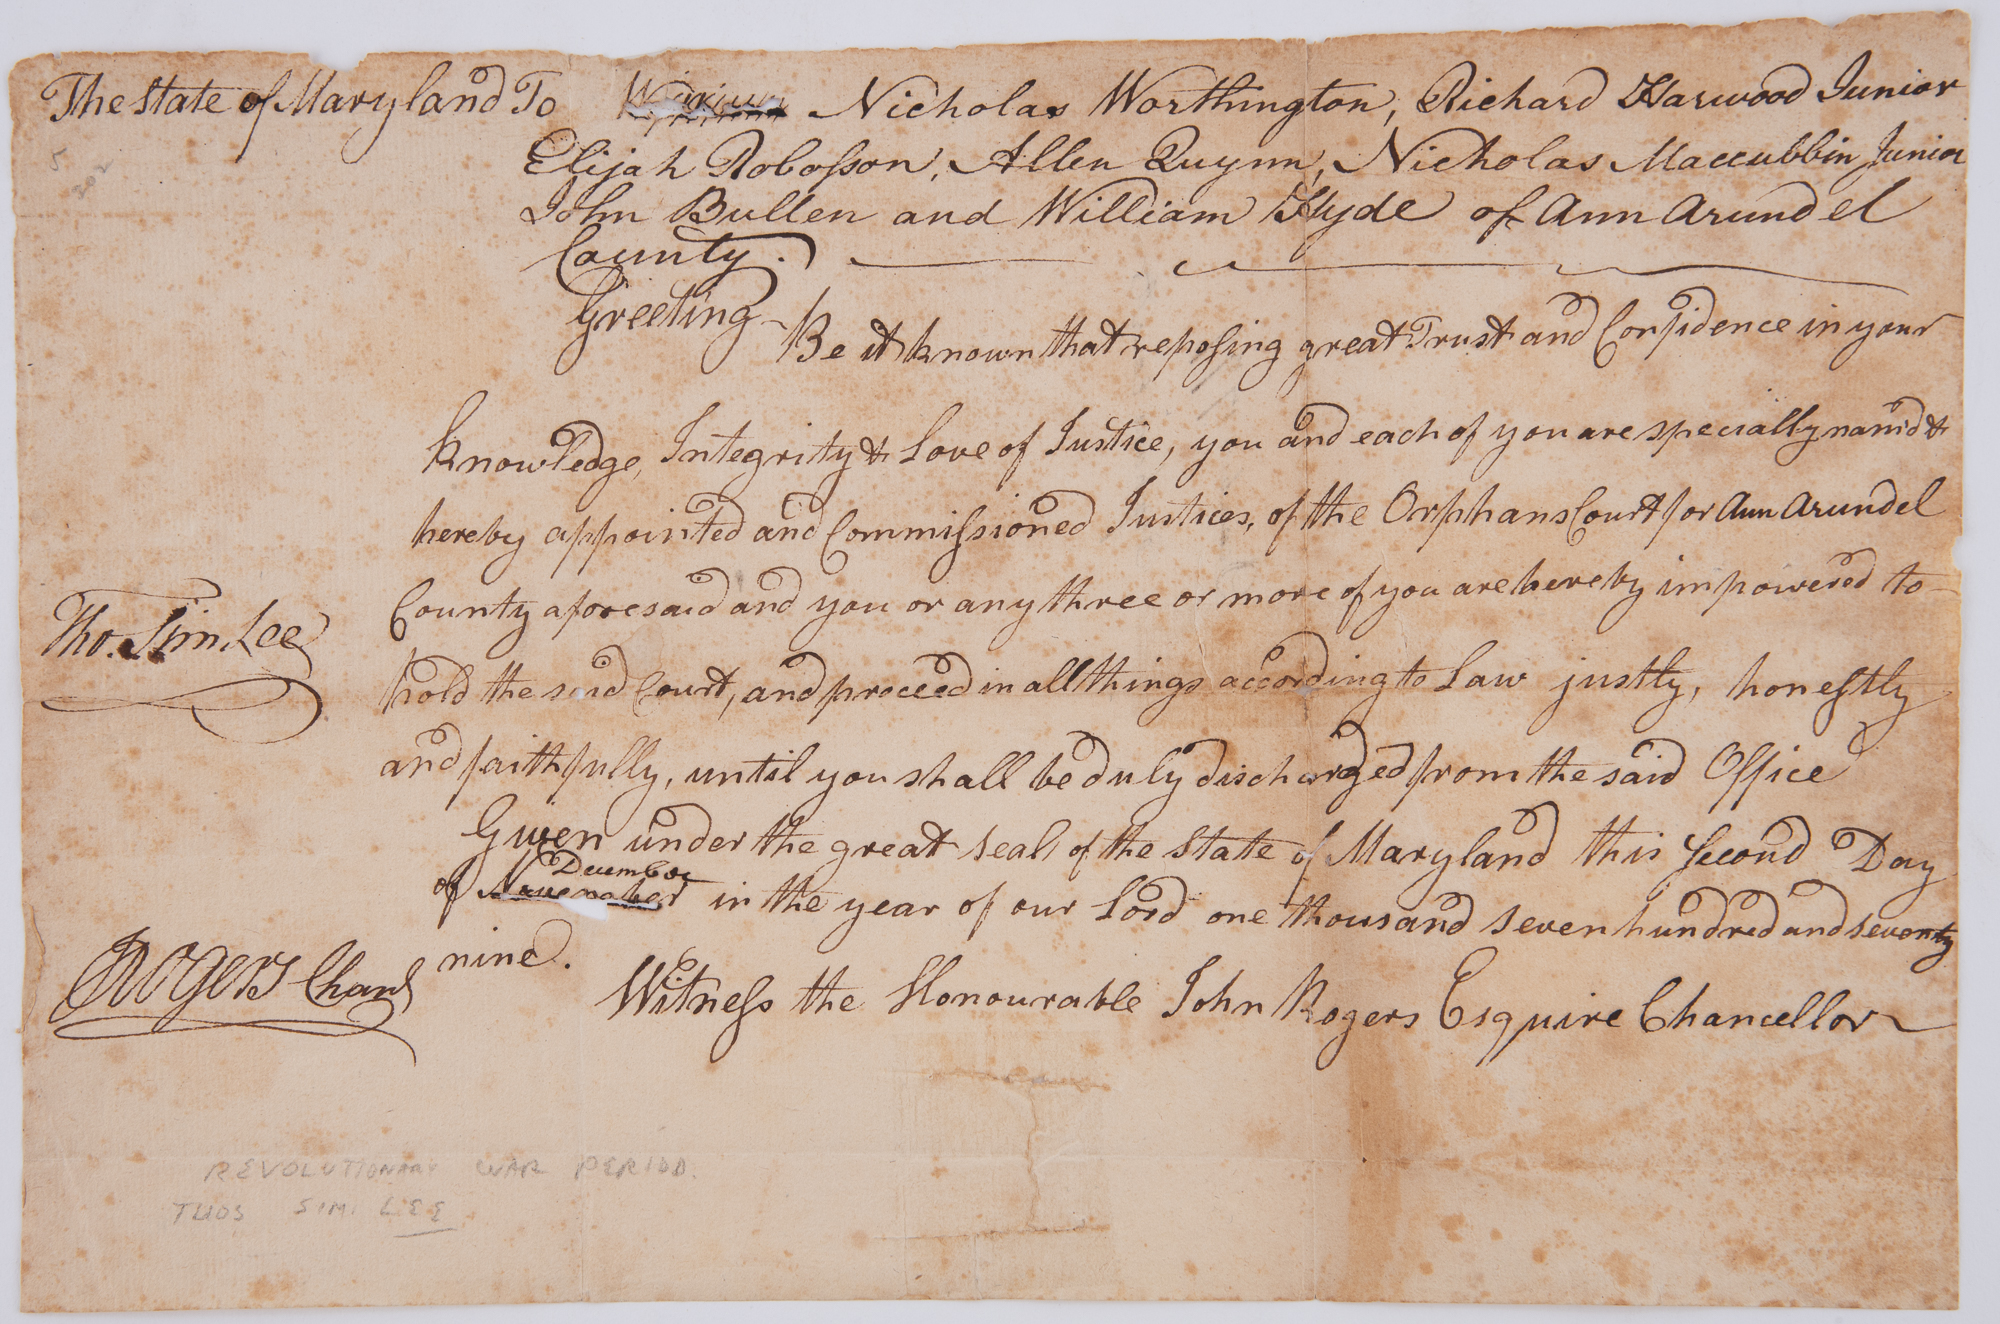 The State of Maryland To Nicholas Worthington, Richard Harwood Junior
Elijah Robosson, Allen Quynn, Nicholas Maccubbin Junior
John Bullen and William Hyde of Ann Arundel
County.
Greeting Be it known that reposing great Trust and Confidence in your
Knowledge, Integrity & Love of Justice, you and each of you are specially nam'd &
hereby appointed and Commissioned Justices, of the Orphans Court for Ann Arundel
County aforesaid and you or any three or more of you are hereby impowered to
hold the said Court, and proceed in all things according to Law justly, honestly
and faithfully, until you shall be duly discharged from the said Office
Given under the great seal of the State of Maryland this Second Day
December
of November in the year of our Lord one thousand seven hundred and seventy
nine.
Witness the Honourable John Rogers Esquire Chancellor
Tho. Sim. Lee
J Rogers Chanl
5
202
REVOLUTIONARY WAR PERIOD.
THOS SIM LEE